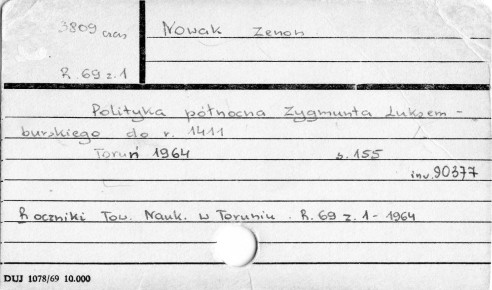 3809 czas
Nowak Zenon
R. 69 z. 1
Polityka północna Zygmunta Luksem-
burskiego do r. 1411
Toruń 1964 s. 155
inw. 90377
Roczniki Tow. Nauk. w Toruniu. R. 69 z. 1 - 1964
DUJ 1078/69 10.000